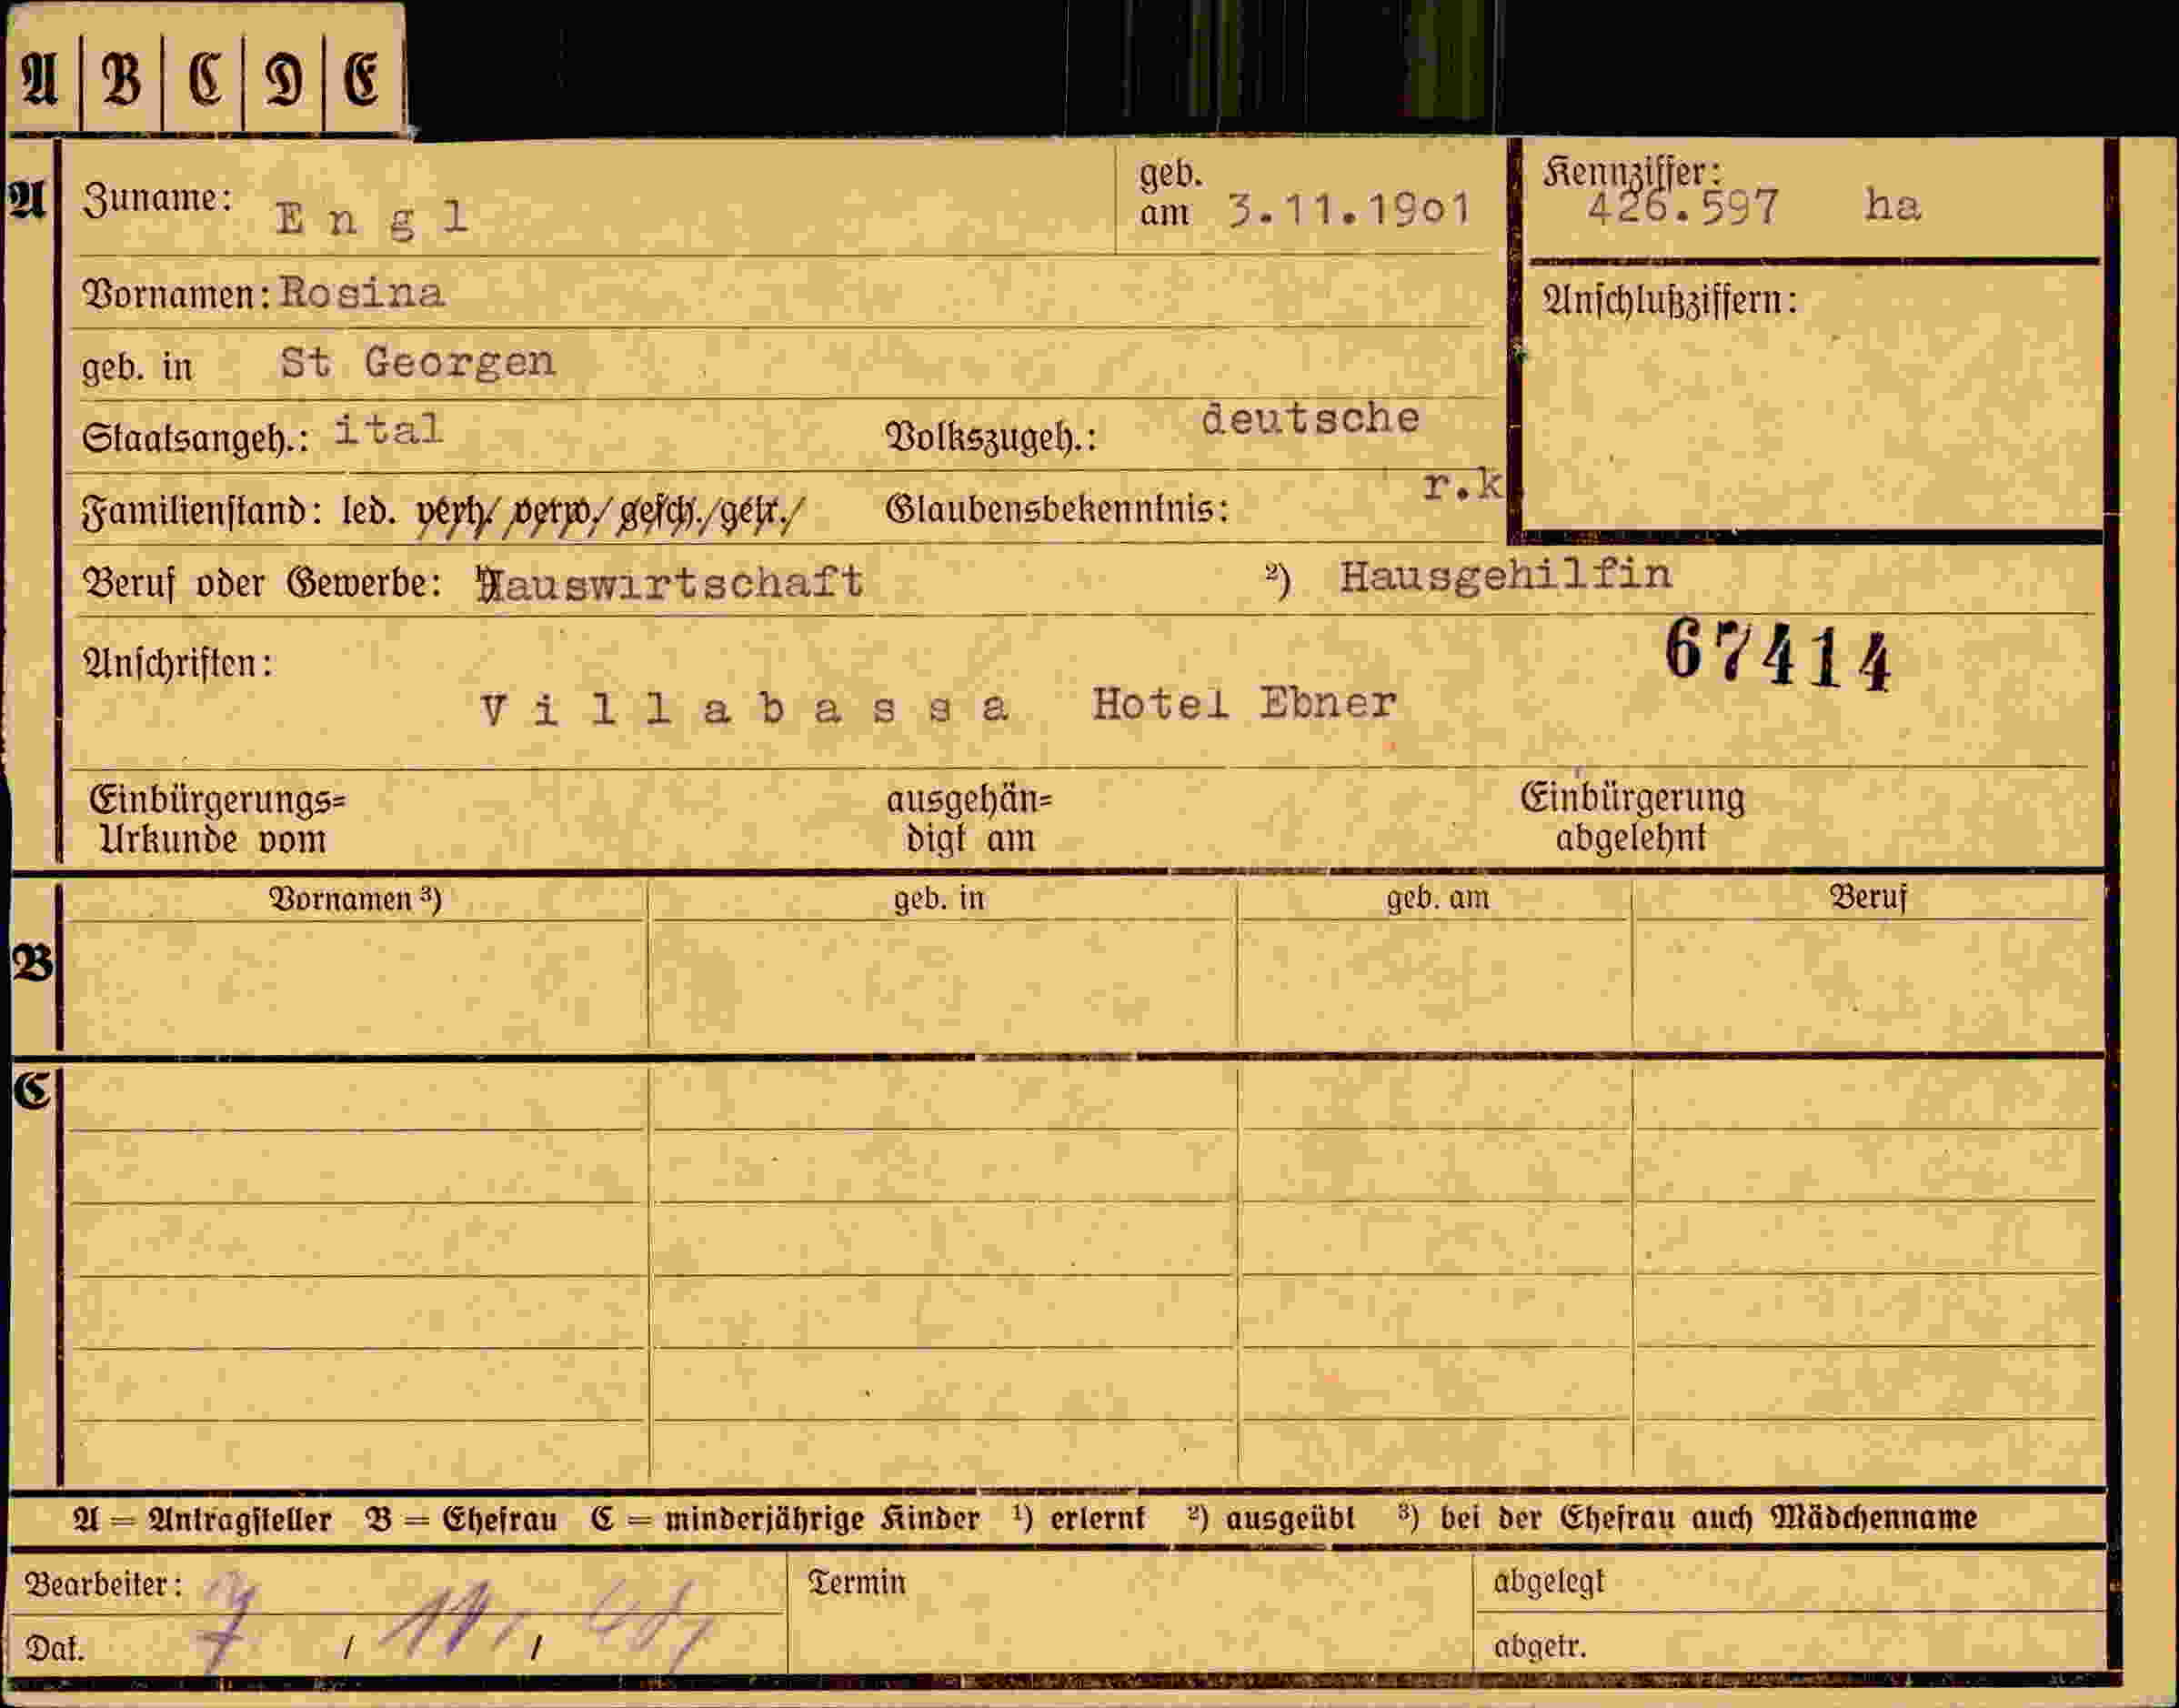 A B C D E
A Zuname: Engl geb. am 3.11.19o1 Kennziffer: 426.597 ha
Vornamen: Rosina Anschlußziffern:
geb. in St Georgen
Staatsangeh.: ital Volkszugeh.: deutsche
Familienstand: led. verh./ verw./ gesch./getr./ Glaubensbekenntnis: r.k
Beruf oder Gewerbe: Hauswirtschaft ²) Hausgehilfin
67414
Anschriften:
Villabassa Hotel Ebner
Einbürgerungs= ausgehän= Einbürgerung
Urkunde vom digt am abgelehnt
Vornamen ³) geb. in geb. am Beruf
B
C
A = Antragsteller B = Ehefrau C = minderjährige Kinder ¹) erlernt ²) ausgeübt ³) bei der Ehefrau auch Mädchenname
Bearbeiter: Termin abgelegt
Dat. 7 / 11. / abgetr.